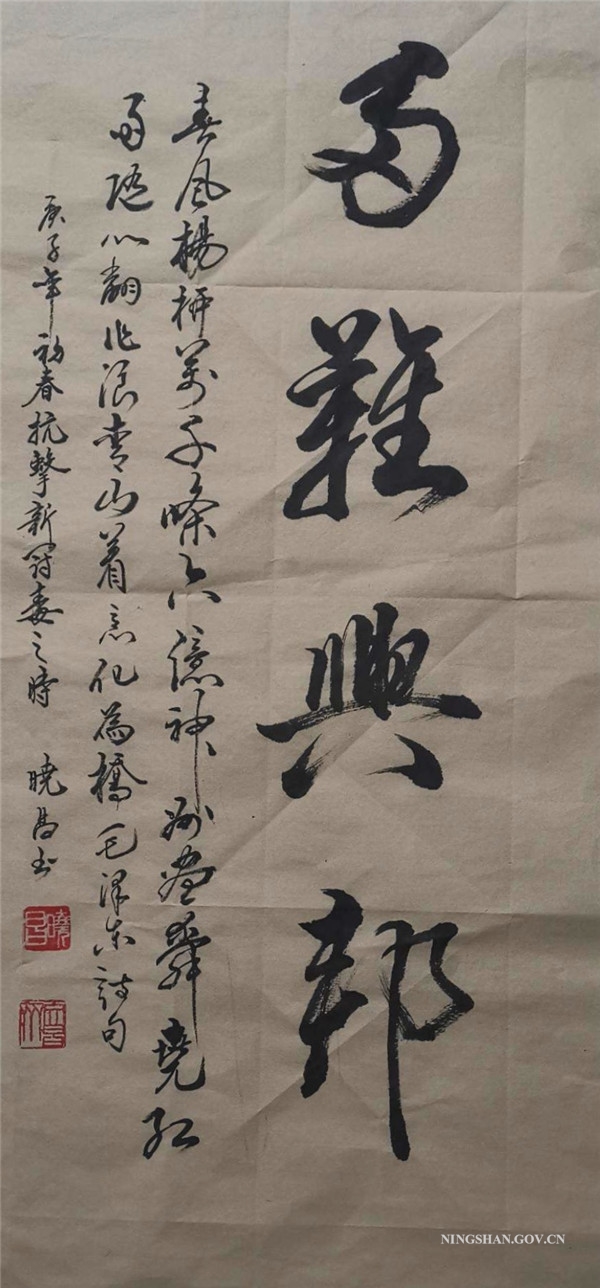 多難興邦
春風楊柳萬千條六億神州盡舜堯紅
雨隨心翻作浪青山着意化為橋毛澤東詩句
庚子年初春抗擊新冠毒之時 曉昌书
NINGSHAN.GOV.CN